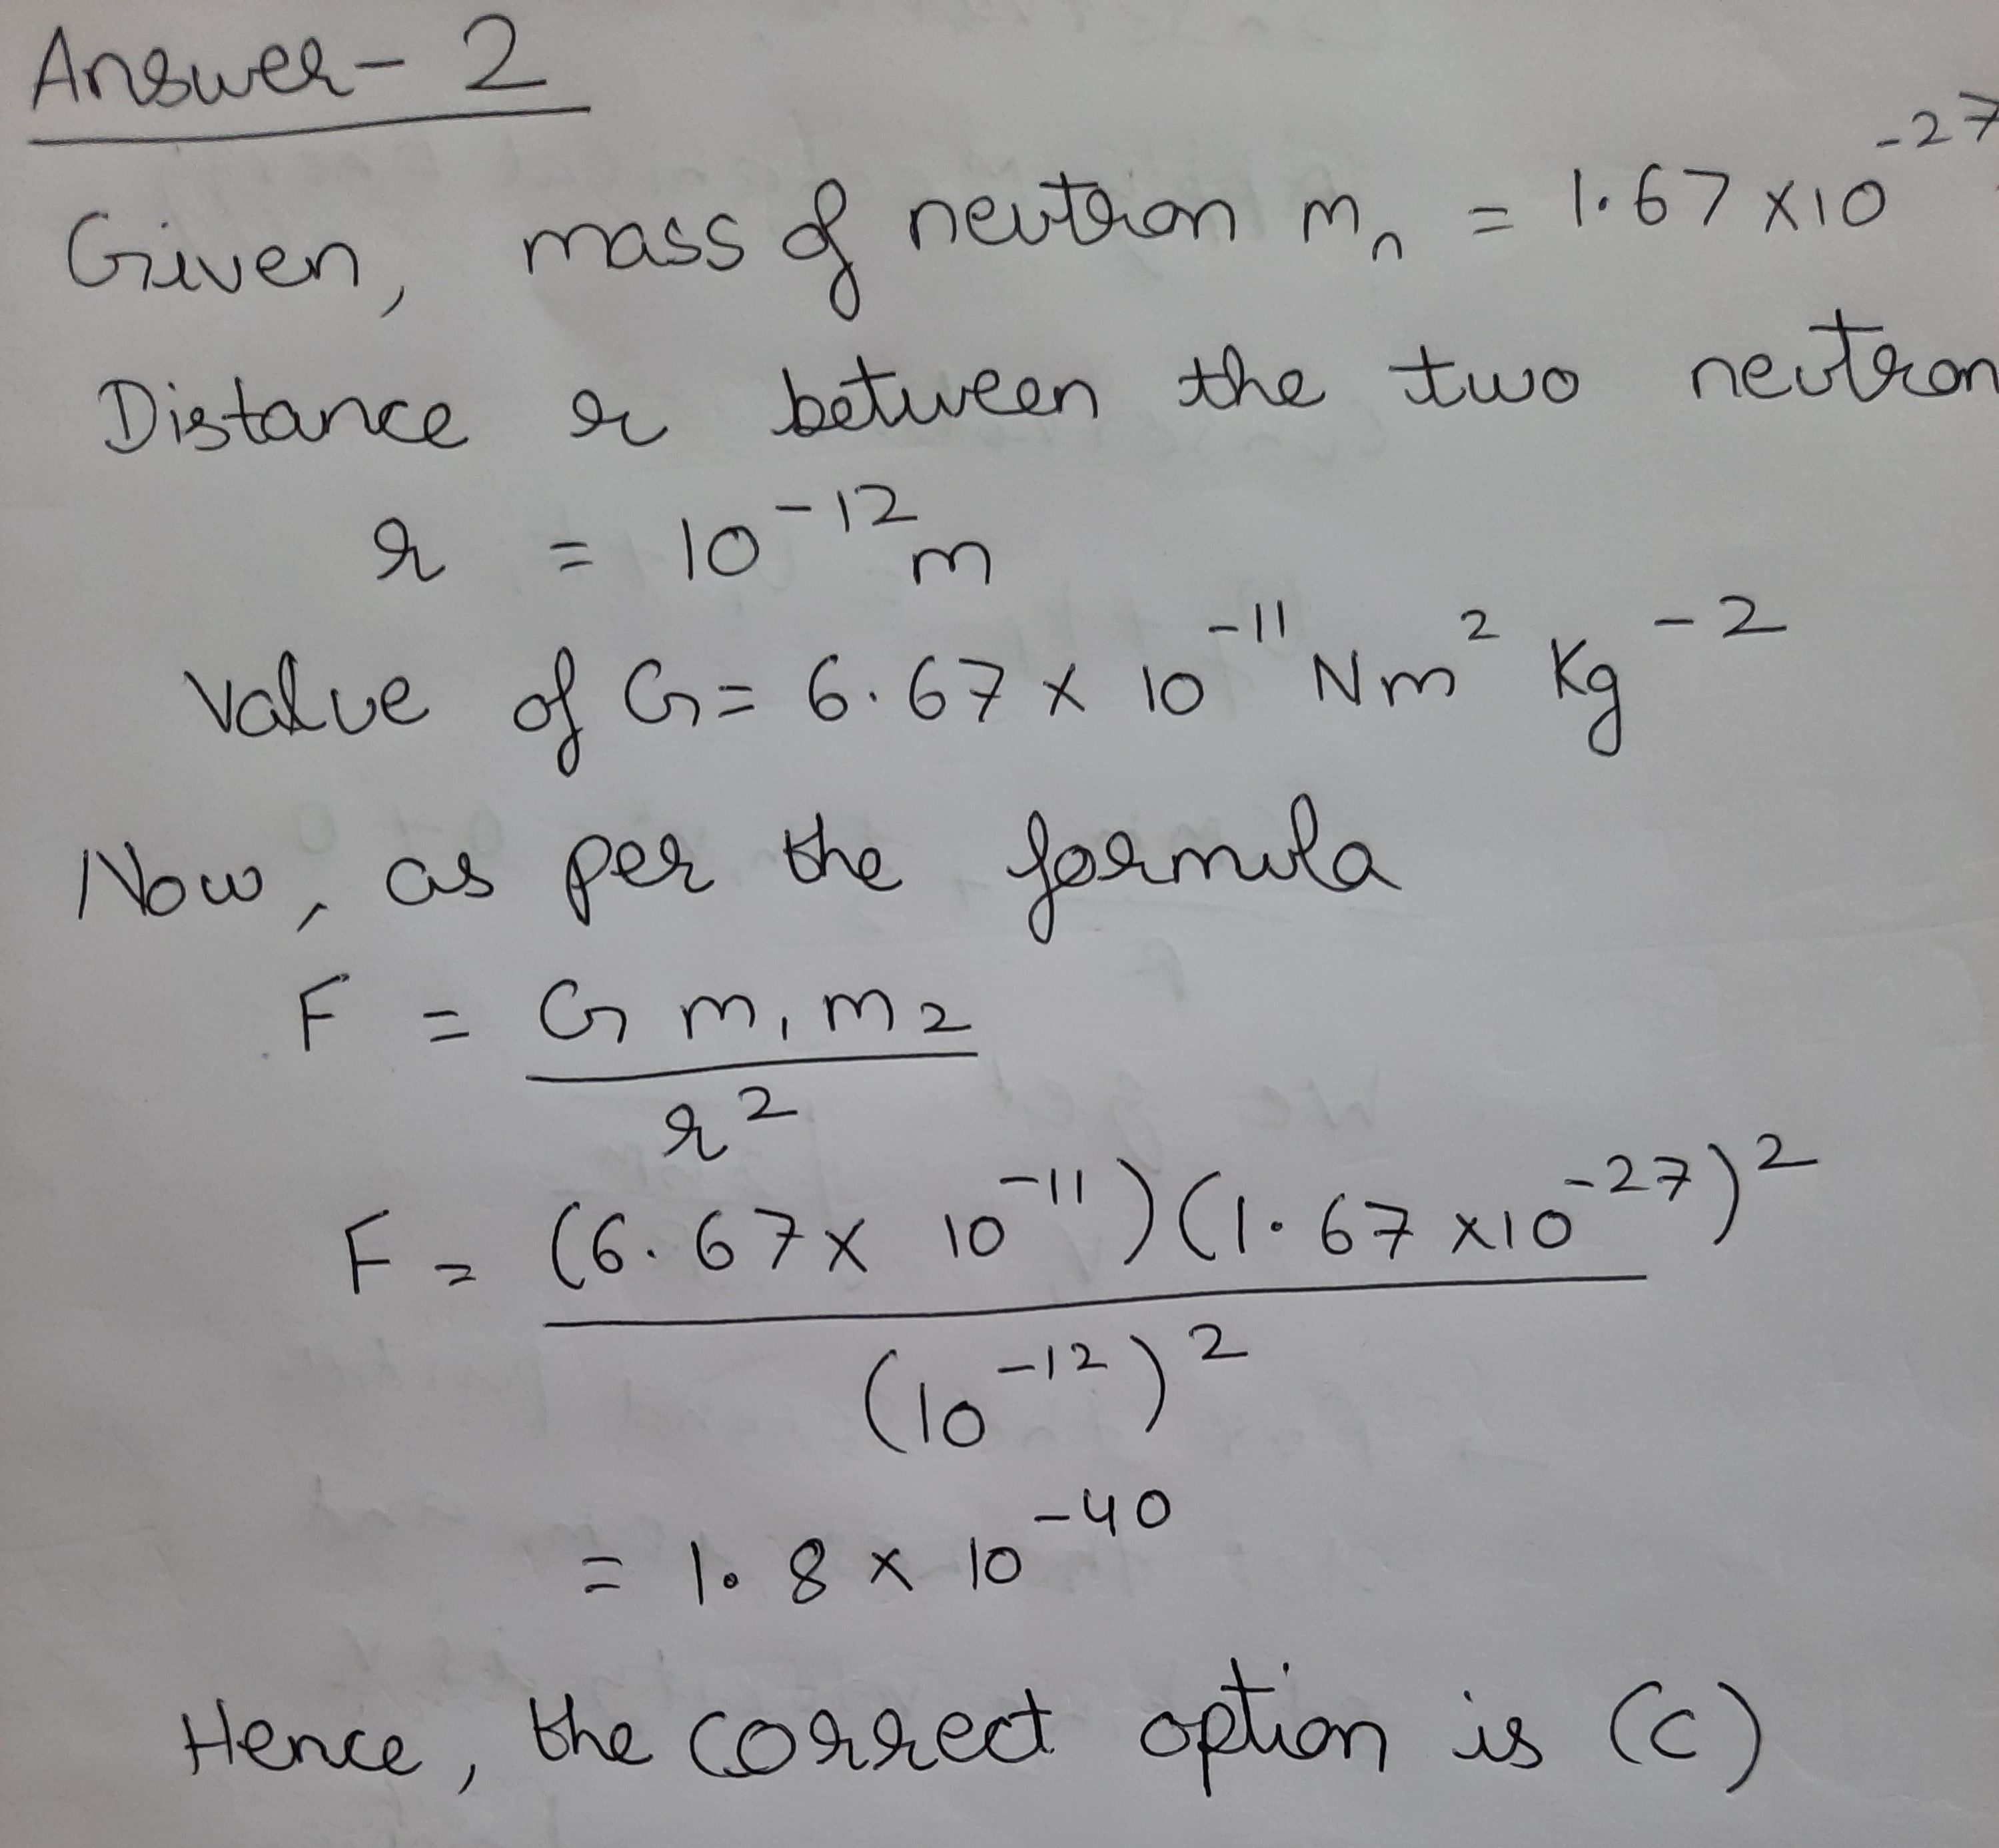 Answer - 2
Given, mass of neutron mₙ = 1.67 × 10⁻²⁷
Distance r between the two neutron
r = 10⁻¹² m
Value of G = 6.67 × 10⁻¹¹ Nm² Kg⁻²
Now, as per the formula
F = G m₁ m₂
r²
F = (6.67 × 10⁻¹¹) (1.67 × 10⁻²⁷)²
(10⁻¹²)²
= 1.8 × 10⁻⁴⁰
Hence, the correct option is (c)